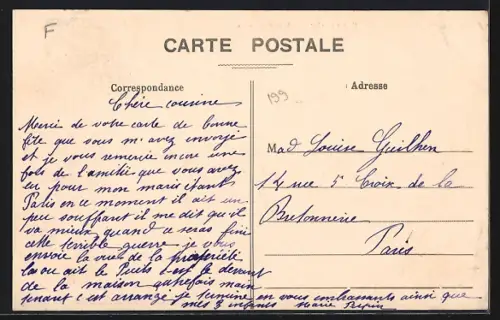 F
CARTE POSTALE
Correspondance
Adresse
199
Chère cousine
Merci de votre carte de bonne
fête que vous m'avez envoyé
et je vous remercie encore une
fois de l'amitié que vous avez
eu pour mon mari étant
Paris en ce moment il ait un
peu souffrant il me dit qu'il
va mieux quand ce seras fini
cette terrible guerre je vous
envoie la vue de la propriété
la ou ait le Puits c'est le devant
de la maison autrefois main
tenant c'est arrangé je termine en vous embrassants ainsi que
mes 3 enfants Marie Pepin
Mad Louise Guilhen
14 rue 5 Croix de la
Bretonnerie
Paris